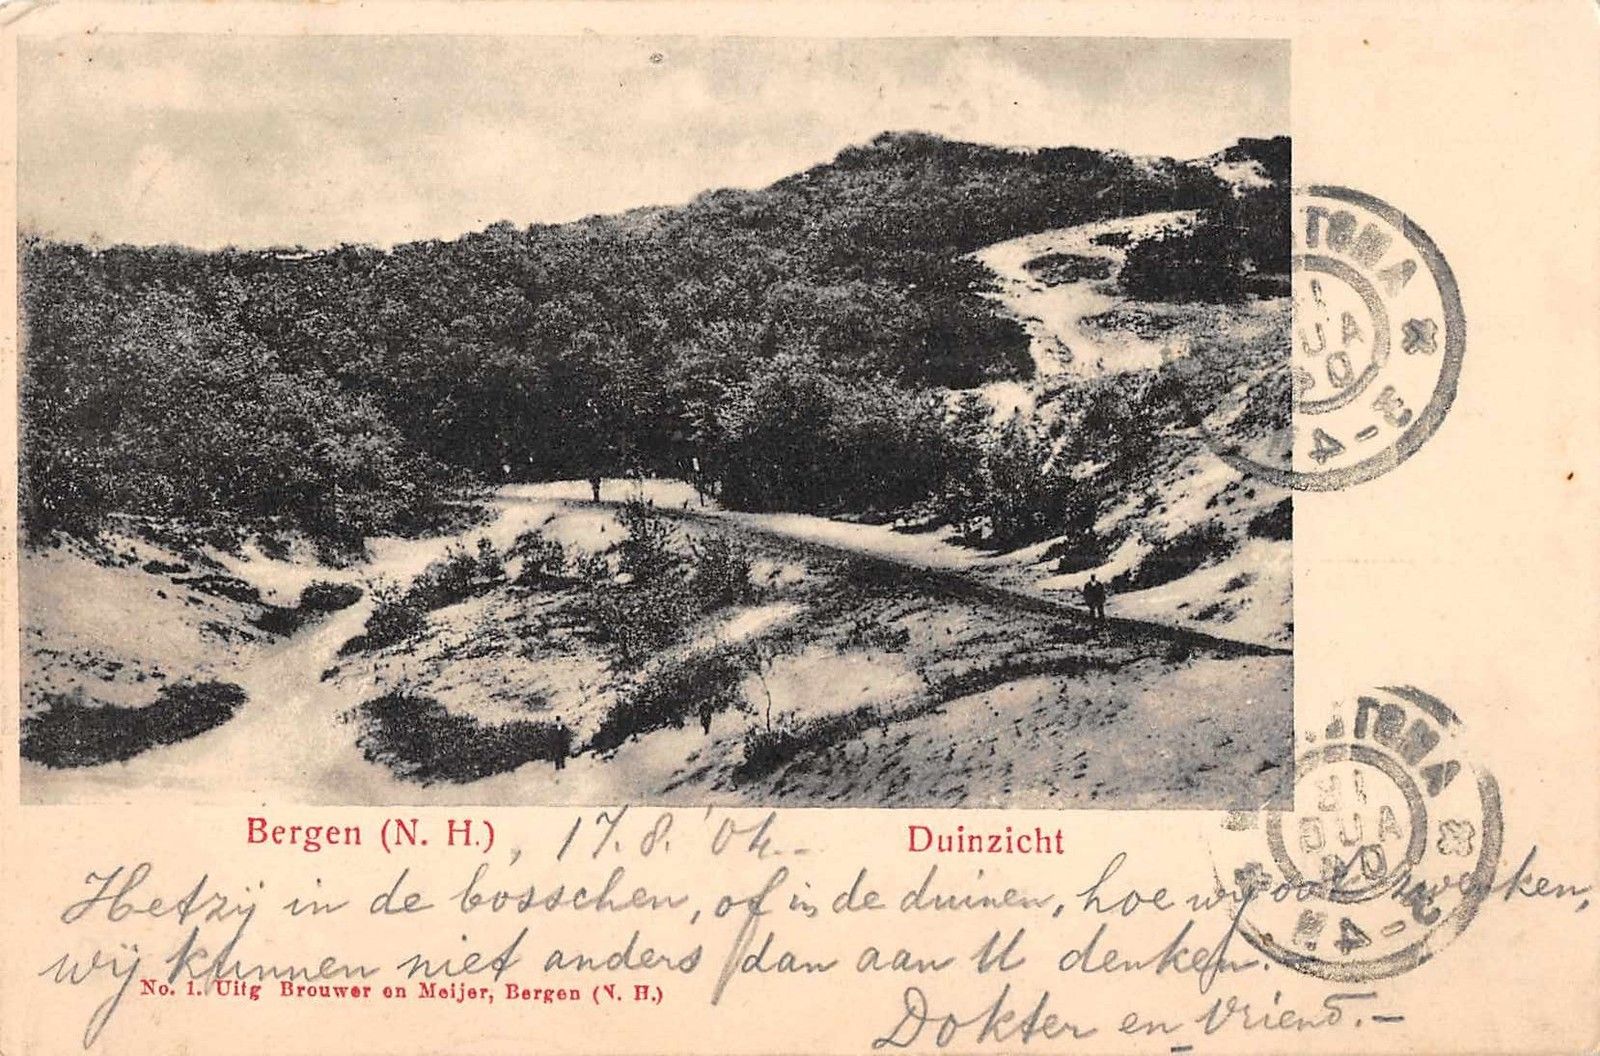 Bergen (N. H.), 17.8.'04.- Duinzicht
Hetzij in de bosschen, of in de duinen, hoe wij ook zwerken,
wij kunnen niet anders dan aan U denken.
No. 1. Uitg Brouwer en Meijer, Bergen (N. H.)
Dokter en Vriend.-
AUG
3-4
AUG
3-4N